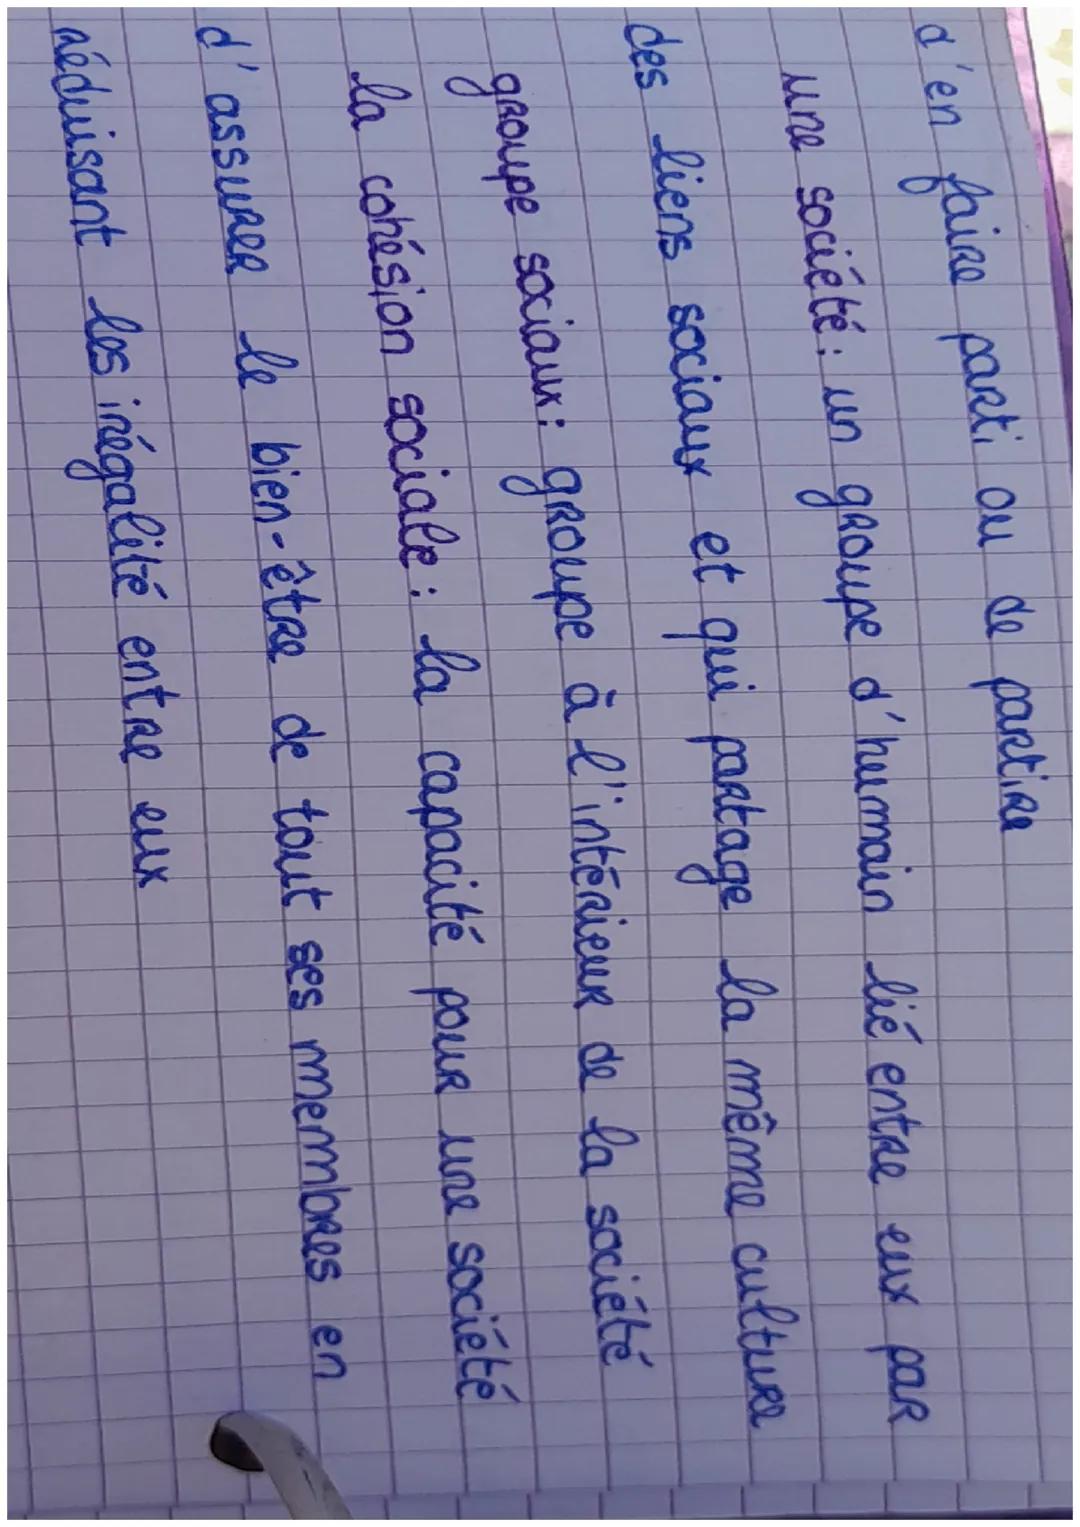 d'en faire parti ou de partire
une société : un groupe d'humain lié entre eux par
des liens sociaux et qui partage la même culture
groupe sociaux : groupe à l'intérieur de la société
la cohésion sociale : la capacité pour une société
d'assurer le bien-être de tout ses membres en
réduisant les inégalité entre eux